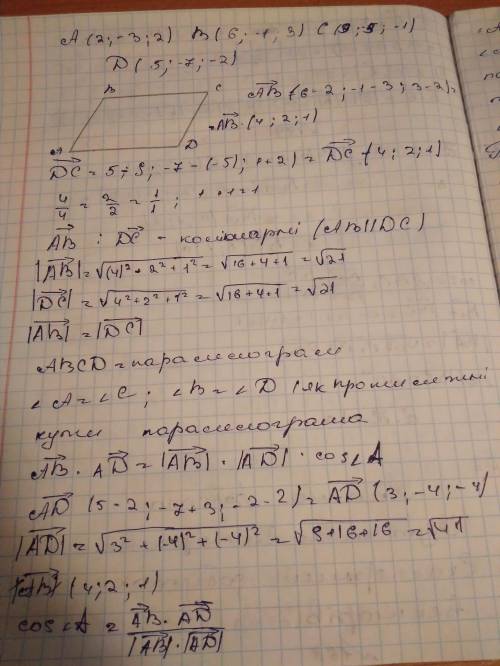 A (2; -3; 2) B (6; -1; 3) C (9; -5; -1)
D (5; -7; -2)
B C
AB (6-2; -1-3; 3-2);
AB (4; 2; 1)
A D
DC = 5-9; -7-(-5); 1+2) = DC (4; 2; 1)
4/4 = 2/2 = 1/1 ; 1=1
AB i DC - колінарні (AB||DC)
|AB| = √((4)²+2²+1²) = √(16+4+1) = √21
|DC| = √(4²+2²+1²) = √(16+4+1) = √21
|AB| = |DC|
ABCD = паралелограм
∠A = ∠C; ∠B = ∠D (як протилежні
кути паралелограма
AB · AD = |AB| · |AD| · cos∠A
AD (5-2; -7+3; -2-2) = AD (3; -4; -4)
|AD| = √(3²+(-4)²+(-4)²) = √(9+16+16) = √41
AB (4; 2; 1)
cos∠A = AB · AD / |AB| · |AD|